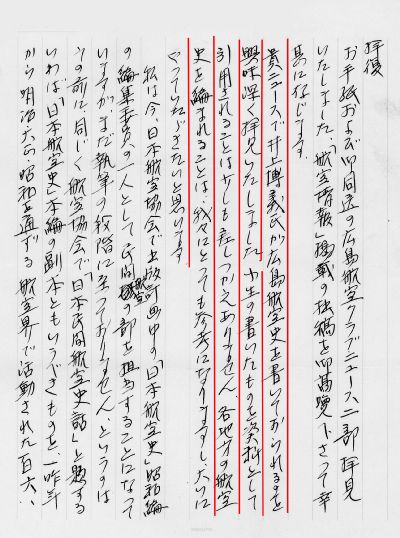 拝復
お手紙および御同送の広島航空クラブニュース二部 拝見
いたしました、「航空情報」掲載の拙稿を御高覧下さって幸
甚に存じます。
貴ニュースで井上博義氏が広島航空史を書いておられるのを
興味深く拝見いたしました 小生の書いたものを資料として
引用されることは少しも差しつかえありません、各地方の航空
史を編まれることは、我々にとっても参考になりますし大いに
やっていただきたいと思います
私は今、日本航空協会で出版計画中の「日本航空史」昭和編
の編集委員の一人として民間航空の部を担当することになって
いますがまだ執筆の段階に至っておりません、というのは
その前に同じく航空協会で「日本民間航空史話」と題する
いわば「日本航空史」本編の副本ともいうべきものを、一昨年
から明治大正・昭和を通ずる 航空界で活動された百六、